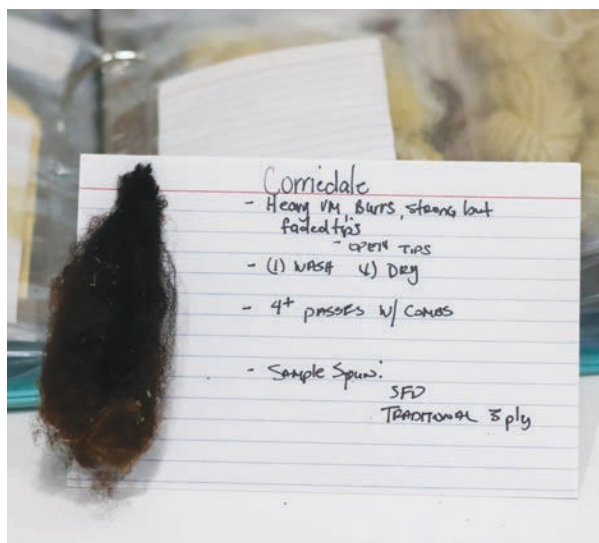 Corriedale
- Heavy VM, Burrs, strong but
faded tips
- OPEN TIPS
- (1) WASH  DRY
- 4+ PASSES W/ COMBS
- SAMPLE SPUN:
SFD
TRADITIONAL 3 ply